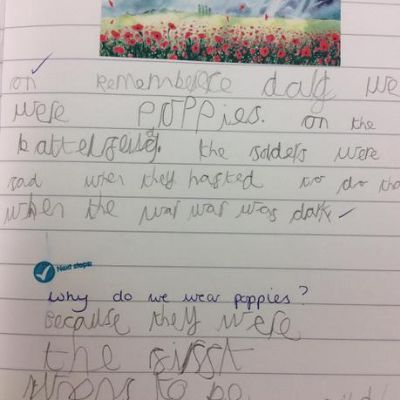 on Remembere day we
were poppies. on the
the solders were
sad when they hasted to do tha
when the war war was dark
Next steps:
why do we wear poppies?
Because they were
the fisst
to be